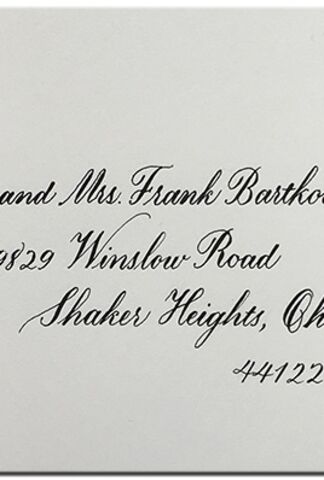 and Mrs. Frank Bartko
9829 Winslow Road
Shaker Heights, Oh
44122